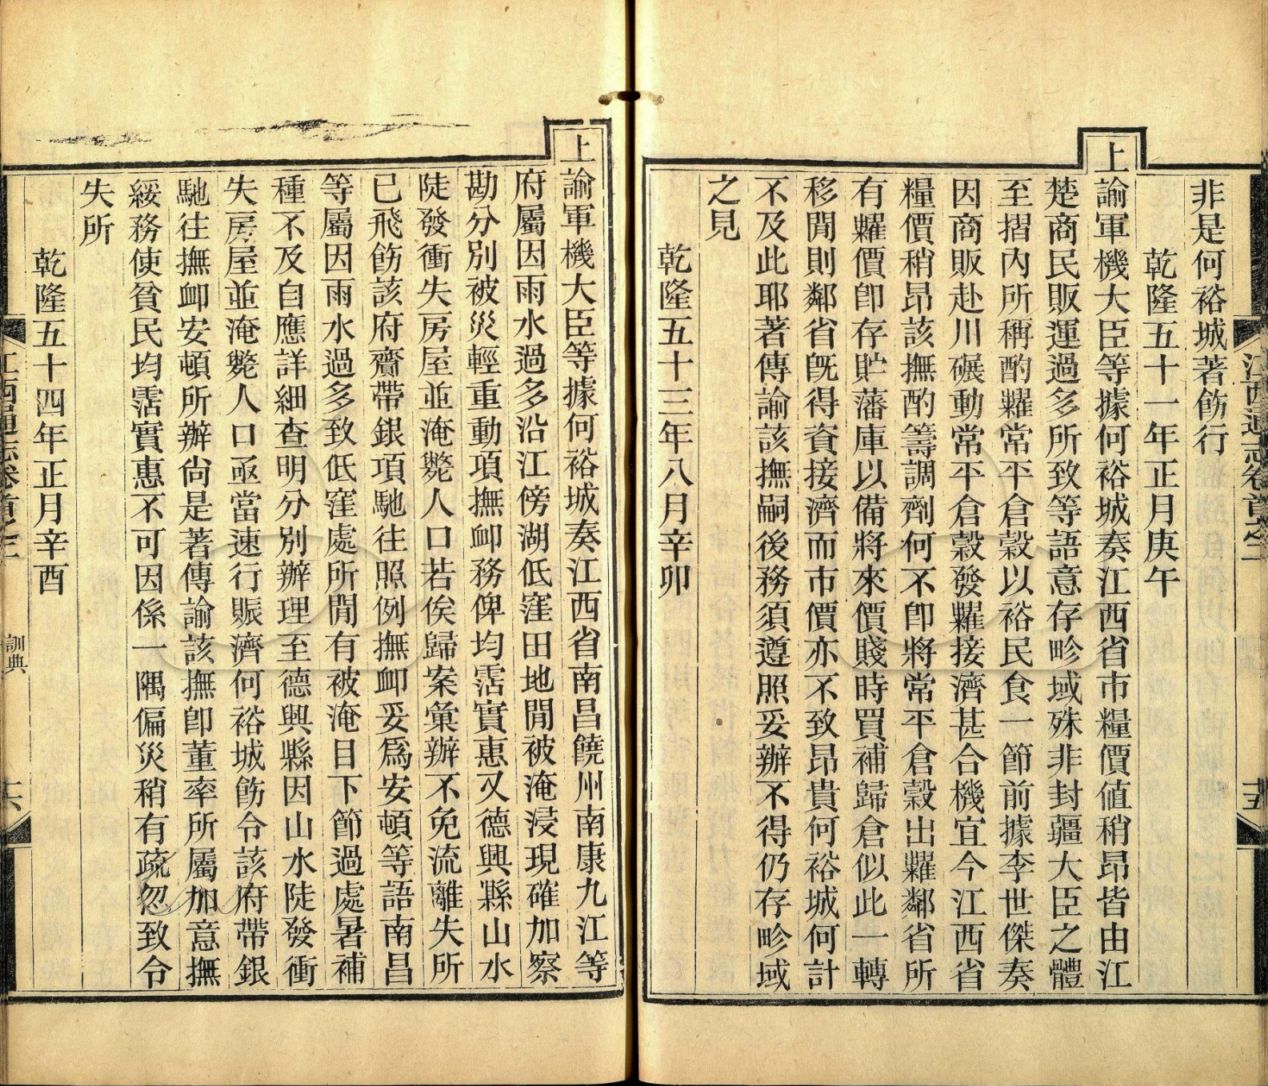 非是何裕城著飭行
乾隆五十一年正月庚午
上諭軍機大臣等據何裕城奏江西省市糧價値稍昂皆由江
楚商民販運過多所致等語意存畛域殊非封疆大臣之體
至摺內所稱酌糶常平倉穀以裕民食一節前據李世傑奏
因商販赴川碾動常平倉穀發糶接濟甚合機宜今江西省
糧價稍昂該撫酌籌調劑何不卽將常平倉穀出糶鄰省所
有糶價卽存貯藩庫以備將來價賤時買補歸倉似此一轉
移閒則鄰省旣得資接濟而市價亦不致昂貴何裕城何計
不及此耶著傳諭該撫嗣後務須遵照妥辦不得仍存畛域
之見
乾隆五十三年八月辛卯
江西通志卷首之二
十五
上諭軍機大臣等據何裕城奏江西省南昌饒州南康九江等
府屬因雨水過多沿江傍湖低窪田地閒被淹浸現確加察
勘分別被災輕重動項撫卹務俾均霑實惠又德興縣山水
陡發衝失房屋並淹斃人口若俟歸案彙辦不免流離失所
已飛飭該府齎帶銀項馳往照例撫卹妥爲安頓等語南昌
等屬因雨水過多致低窪處所閒有被淹目下節過處暑補
種不及自應詳細查明分別辦理至德興縣因山水陡發衝
失房屋並淹斃人口亟當速行賑濟何裕城飭令該府帶銀
馳往撫卹安頓所辦尙是著傳諭該撫卽董率所屬加意撫
綏務使貧民均霑實惠不可因係一隅偏災稍有疏忽致令
失所
乾隆五十四年正月辛酉
江西通志卷首之二
訓典
十六